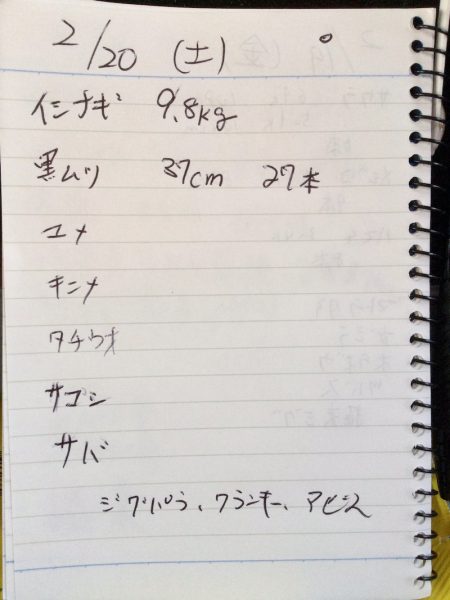 2/20 (土)
イシナギ 9.8kg
黒ムツ 37cm 27本
ユメ
キンメ
タチウオ
サゴシ
サバ
ジグパラ、クランキー、アビス